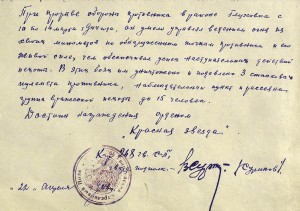 При прорыве обороны противника в районе Глуховка с
10 по 14 марта с/года, он умело управлял ведением огня из
своих минометов по обнаруженным точкам противника и его
живой силе, тем обеспечивая успех наступательных действий
пехоты. В этих боях им уничтожено и подавлено 3 станковых
пулемета противника, наблюдательный пункт и рассеяна
группа вражеской пехоты до 15 человек.
Достоин награждения орденом
"Красная звезда"
К-р 248 гв. с.п.
гв. подполк.
"22" апреля